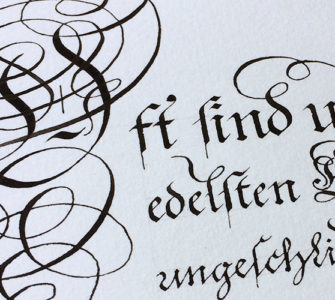 Oft ſind u
edelſten
ungeſchli